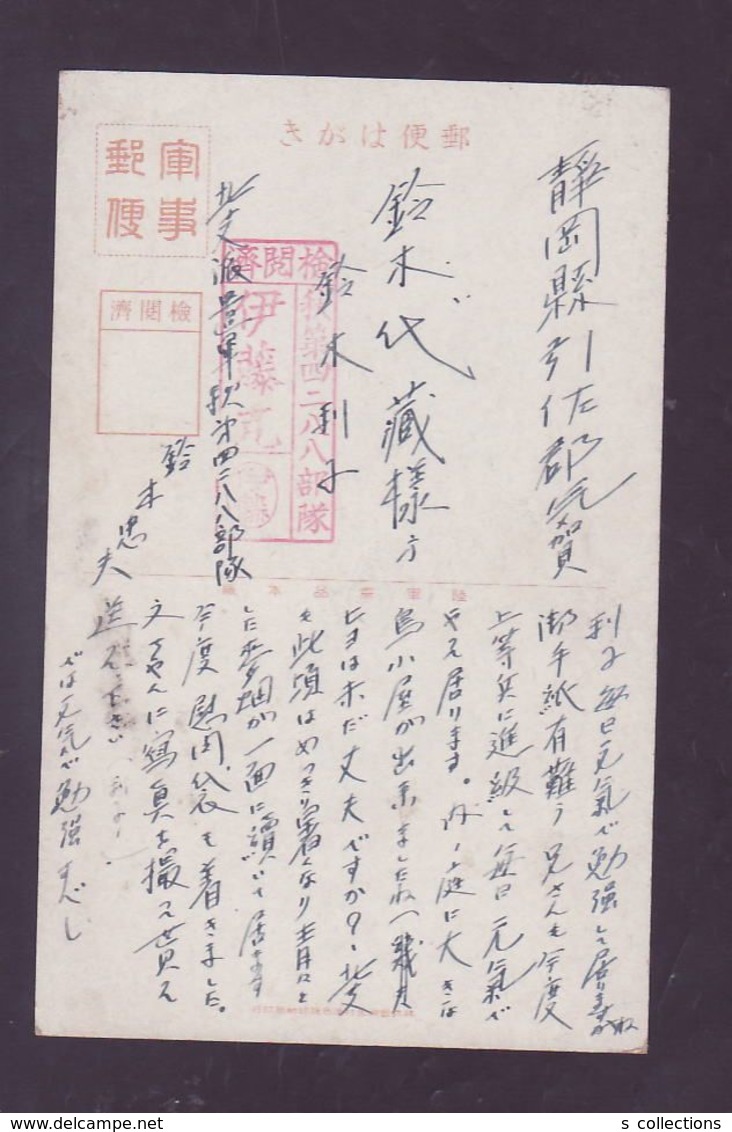 郵便はがき
軍事
郵便
検閲濟
静岡縣引佐郡気賀
鈴木代藏様方
鈴木利子
検閲濟
第四二八八部隊
伊藤
北支派遣軍
第四二八八部隊
鈴木忠夫
利子毎日元氣で勉強して居りますかね
御手紙有難う 兄さんも今度
上等兵に進級して毎日元氣で
居ります。庭に大きな
鳥小屋が出来ましたね
ヒヨは未だ丈夫ですか?北支
も此頃はめっきり暑くなり青々と
した麥畑が一面に續いて居ます
今度慰問袋も着きました。
文ちゃんに寫真を撮って貰って
送って下さい
では元気で勉強すべし
s collections